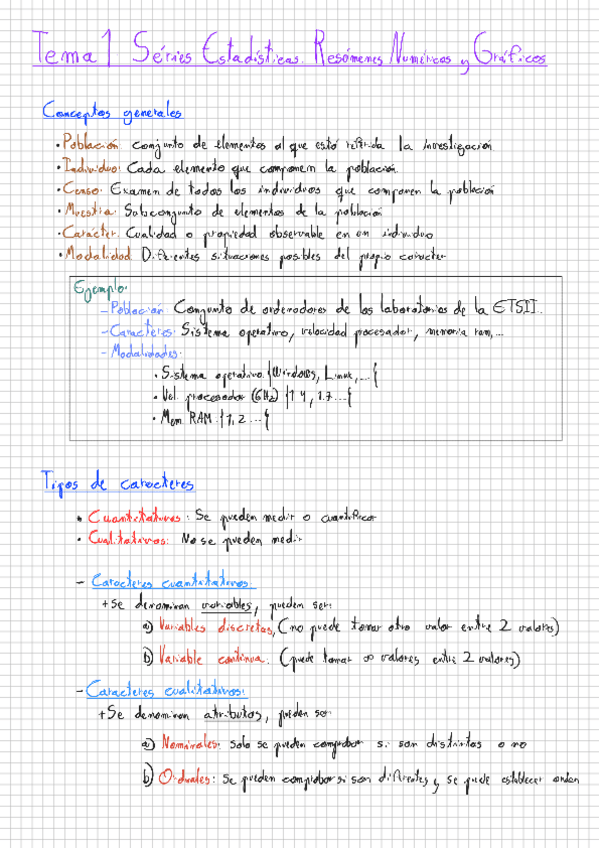 Tema 1 Séries Estadísticas. Resúmenes Numéricos y Gráficos
Conceptos generales
• Población: Conjunto de elementos al que está referida la investigación
• Individuo: Cada elemento que componen la población.
• Censo: Examen de todos los individuos que componen la población
• Muestra: Subconjunto de elementos de la población
• Carácter: Cualidad o propiedad observable en un individuo
• Modalidad: Diferentes situaciones posibles del propio carácter
Ejemplo:
- Población: Conjunto de ordenadores de los laboratorios de la ETSII.
- Caracteres: Sistema operativo, velocidad procesador, memoria ram,...
- Modalidades:
• Sistema operativo: {Windows, Linux,...{
• Vel. procesador (GHz) {1'4, 1.7...{
• Mem RAM: {1, 2...{
Tipos de caracteres
• Cuantitativos: Se pueden medir o cuantificar
• Cualitativos: No se pueden medir
- Caracteres cuantitativos:
+ Se denominan variables, pueden ser:
a) Variables discretas, (no puede tomar otro valor entre 2 valores)
b) Variable continua: (puede tomar ∞ valores entre 2 valores)
- Caracteres cualitativos:
+ Se denominan atributos, pueden ser
a) Nominales: solo se pueden comprobar si son distintas o no
b) Ordinales: se pueden comprobar si son diferentes y se puede establecer orden